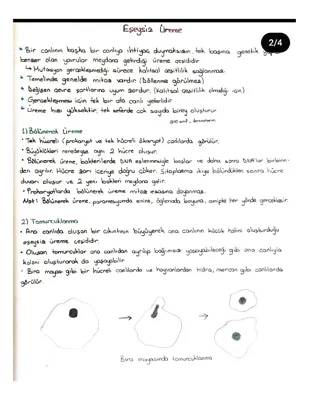 Eşeysiz Üreme
2/4
• Bir canlının başka bir canlıya ihtiyaç duymaksızın tek başına genetik
benzer olan yavrular meydana getirdiği üreme çeşididir
↳ Mutasyon gerçekleşmediği sürece kalıtsal çeşitlilik sağlanmaz.
• Temelinde genelde mitoz vardır (bölünme görülmez)
• Değişen çevre şartlarına uyum zordur. (Kalıtsal çeşitlilik olmadığı için)
• Gerçekleşmesi için tek bir ata canlı yeterlidir
↳ Üreme hızı yüksektir, tek seferde çok sayıda birey oluşturur
1) Bölünerek Üreme
• Tek hücreli (prokaryot ve tek hücreli ökaryot) canlılarda görülür.
• Büyüklükleri neredeyse aynı 2 hücre oluşur.
• Bölünerek üreme, bakterilerde DNA eşlenmesiyle başlar ve daha sonra DNA'lar birbirin-
den ayrılır. Hücre zarı içeriye doğru çöker. Sitoplazma ikiye bölündükten sonra hücre
duvarı oluşur ve 2 yeni bakteri meydana gelir.
• Prokaryotlarda bölünerek üreme mitoz esasına dayanmaz.
Not: Bölünerek üreme, paramesyumda enine, öglenada boyuna, amipte her yönde gerçekleşir.
2) Tomurcuklanma
• Ana canlıda oluşan bir çıkıntının büyüyerek ana canlının küçük halini oluşturduğu
eşeysiz üreme çeşididir.
• Oluşan tomurcuklar ana canlıdan ayrılıp bağımsız yaşayabileceği gibi ana canlıyla
koloni oluşturarak da yaşayabilir.
• Bira mayası gibi bir hücreli canlılarda ve hayvanlardan hidra, mercan gibi canlılarda
görülür.
Bira mayasında tomurcuklanma